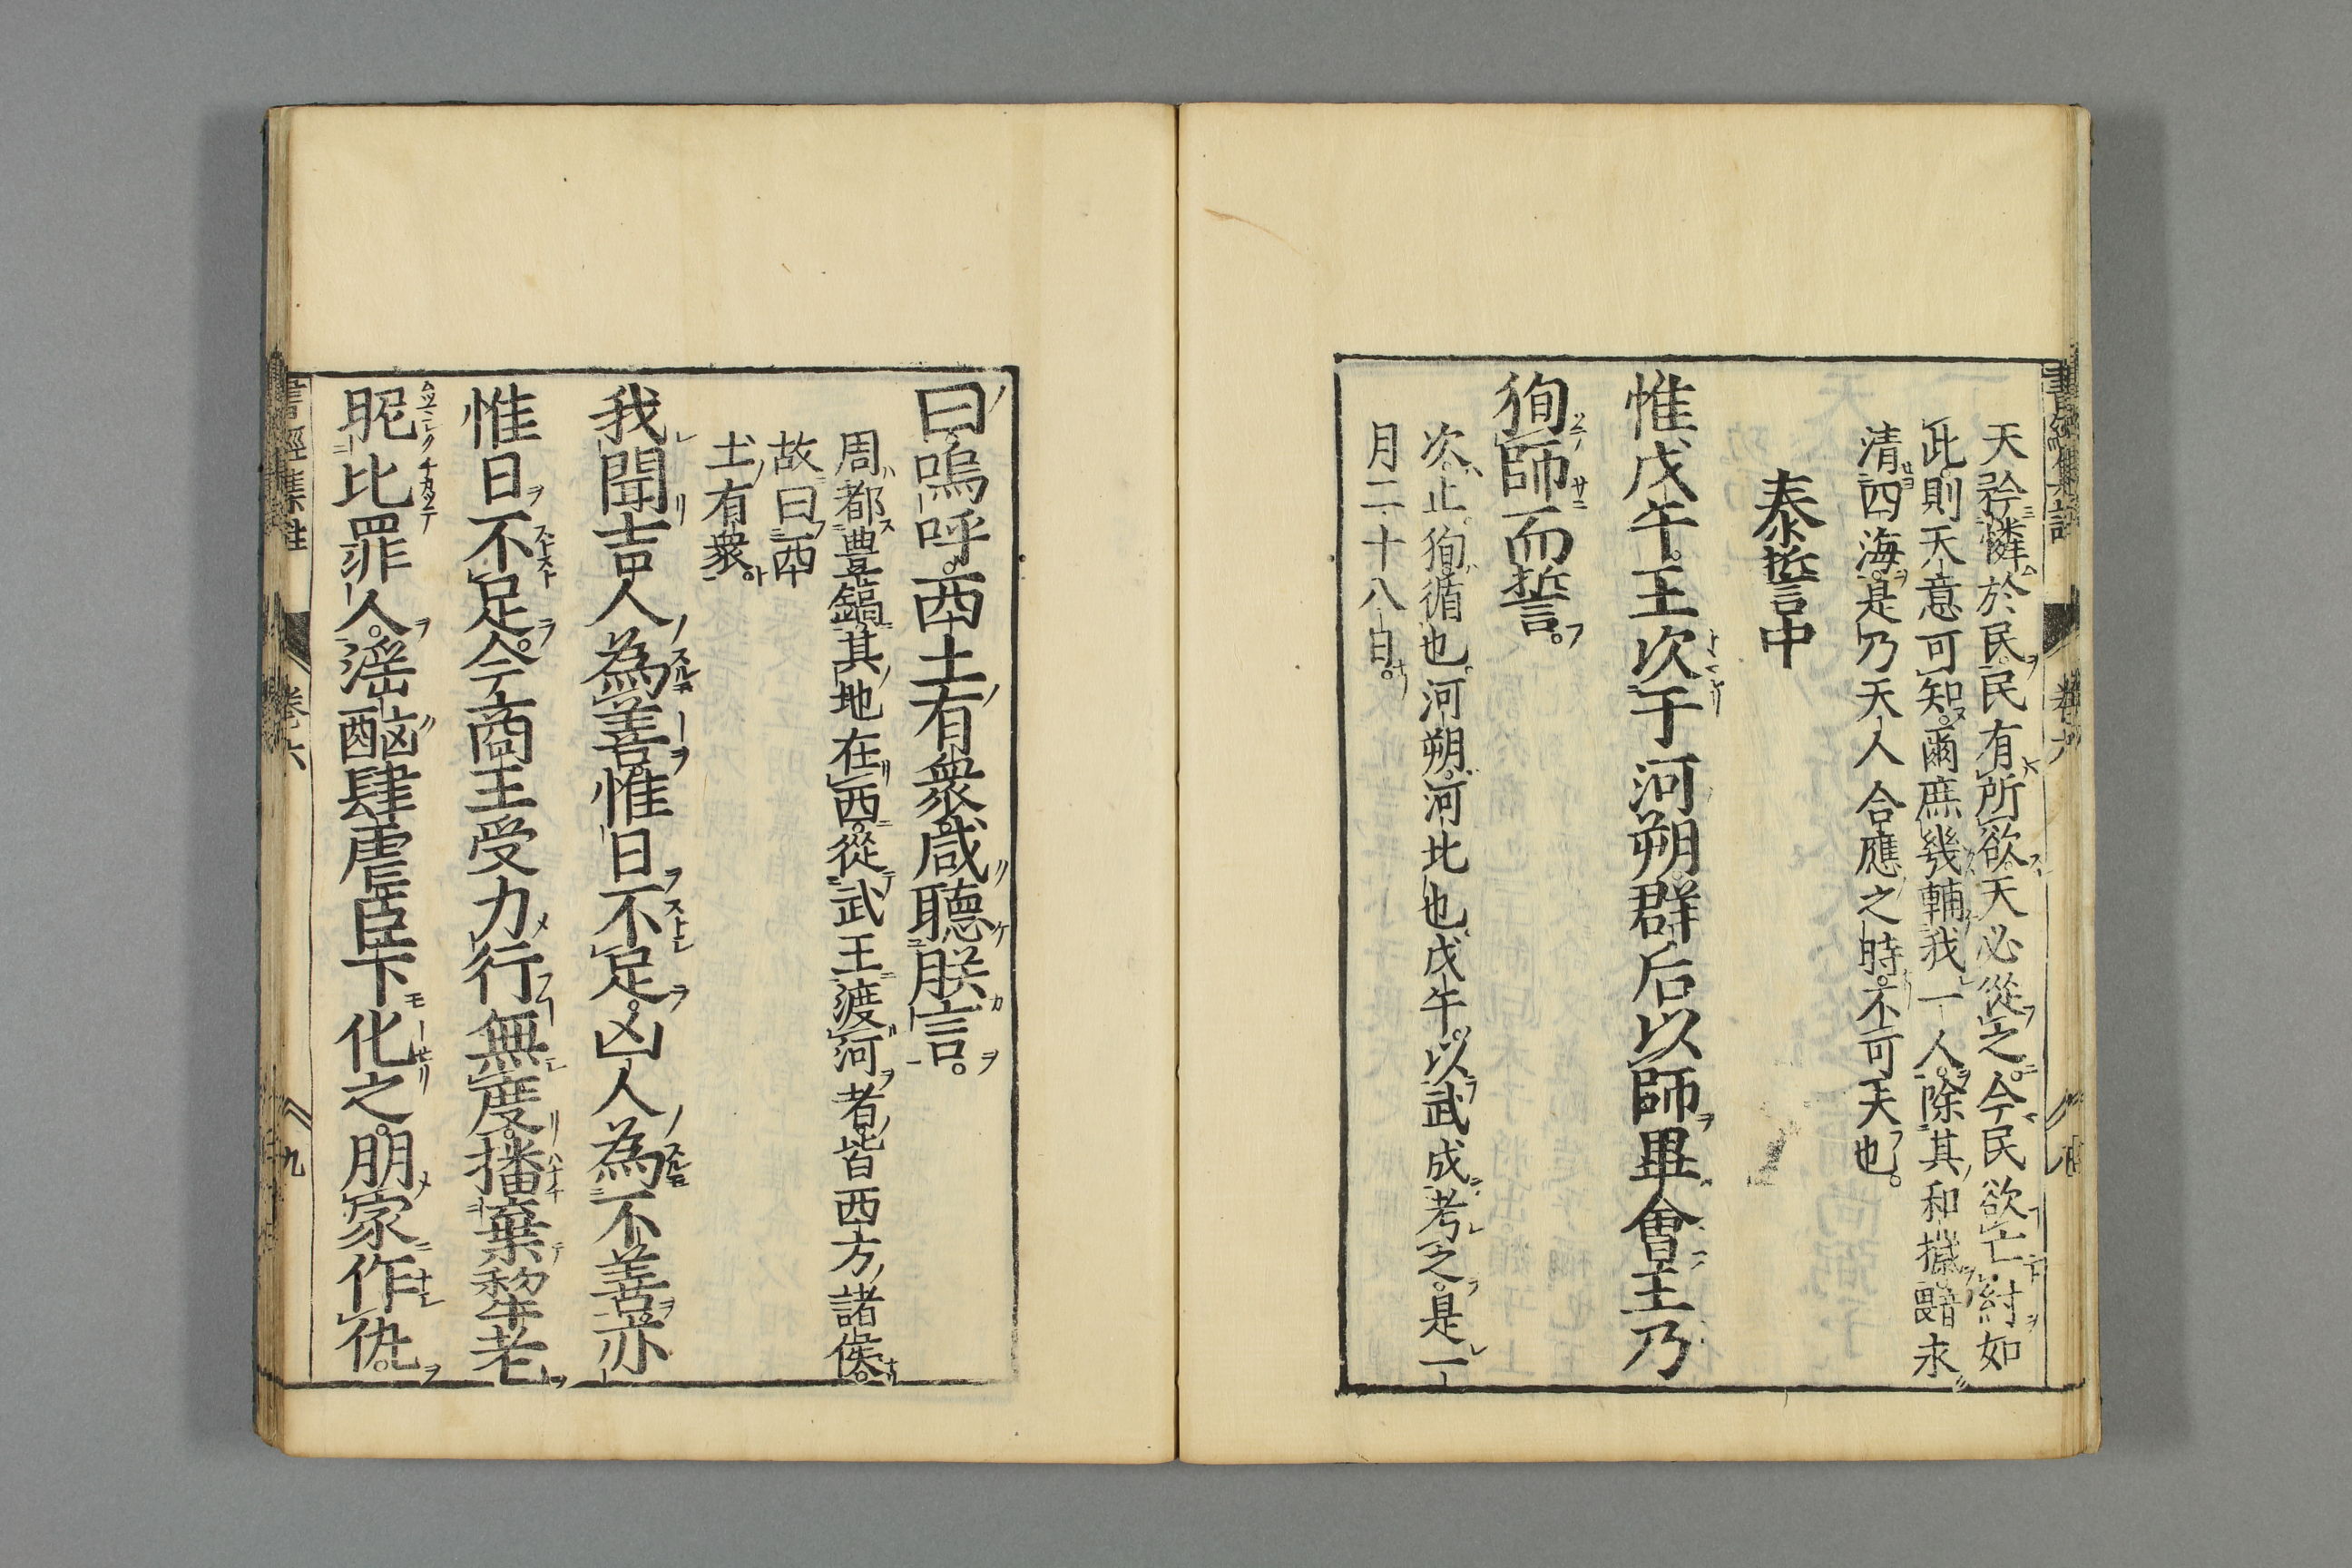 天矜憐於民。民有所欲。天必從之。今民欲亡紂如
此。則天意可知。爾庶幾輔我一人。除其和穢。永
清四海。是乃天人合應之時。不可失也。
泰誓中
惟戊午。王次于河朔。群后以師畢會。王乃
狥師而誓。
次。止。狥。循也。河朔。河北也。戊午。以武成考之。是一
月二十八日。
曰。嗚呼。西土有衆。咸聽朕言。
周都豊鎬。其地在西。從武王渡河者。皆西方諸侯。
故曰西
土有衆。
我聞吉人為善。惟日不足。凶人為不善。亦
惟日不足。今商王受力行無度。播棄犂老
昵比罪人。淫酗肆虐。臣下化之。朋家作仇。
書經集註 卷六 九